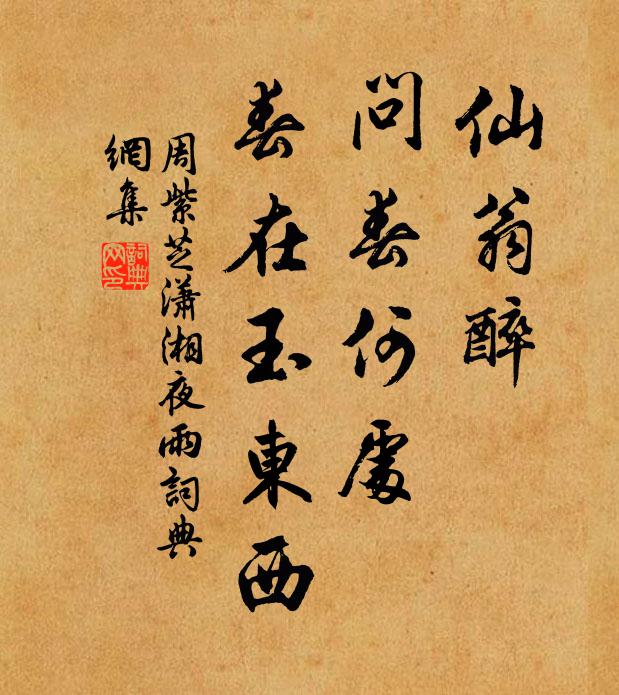 仙翁醉
問春何處
春在玉東西
周紫芝瀟湘夜雨詞典
網集
詞典
网印